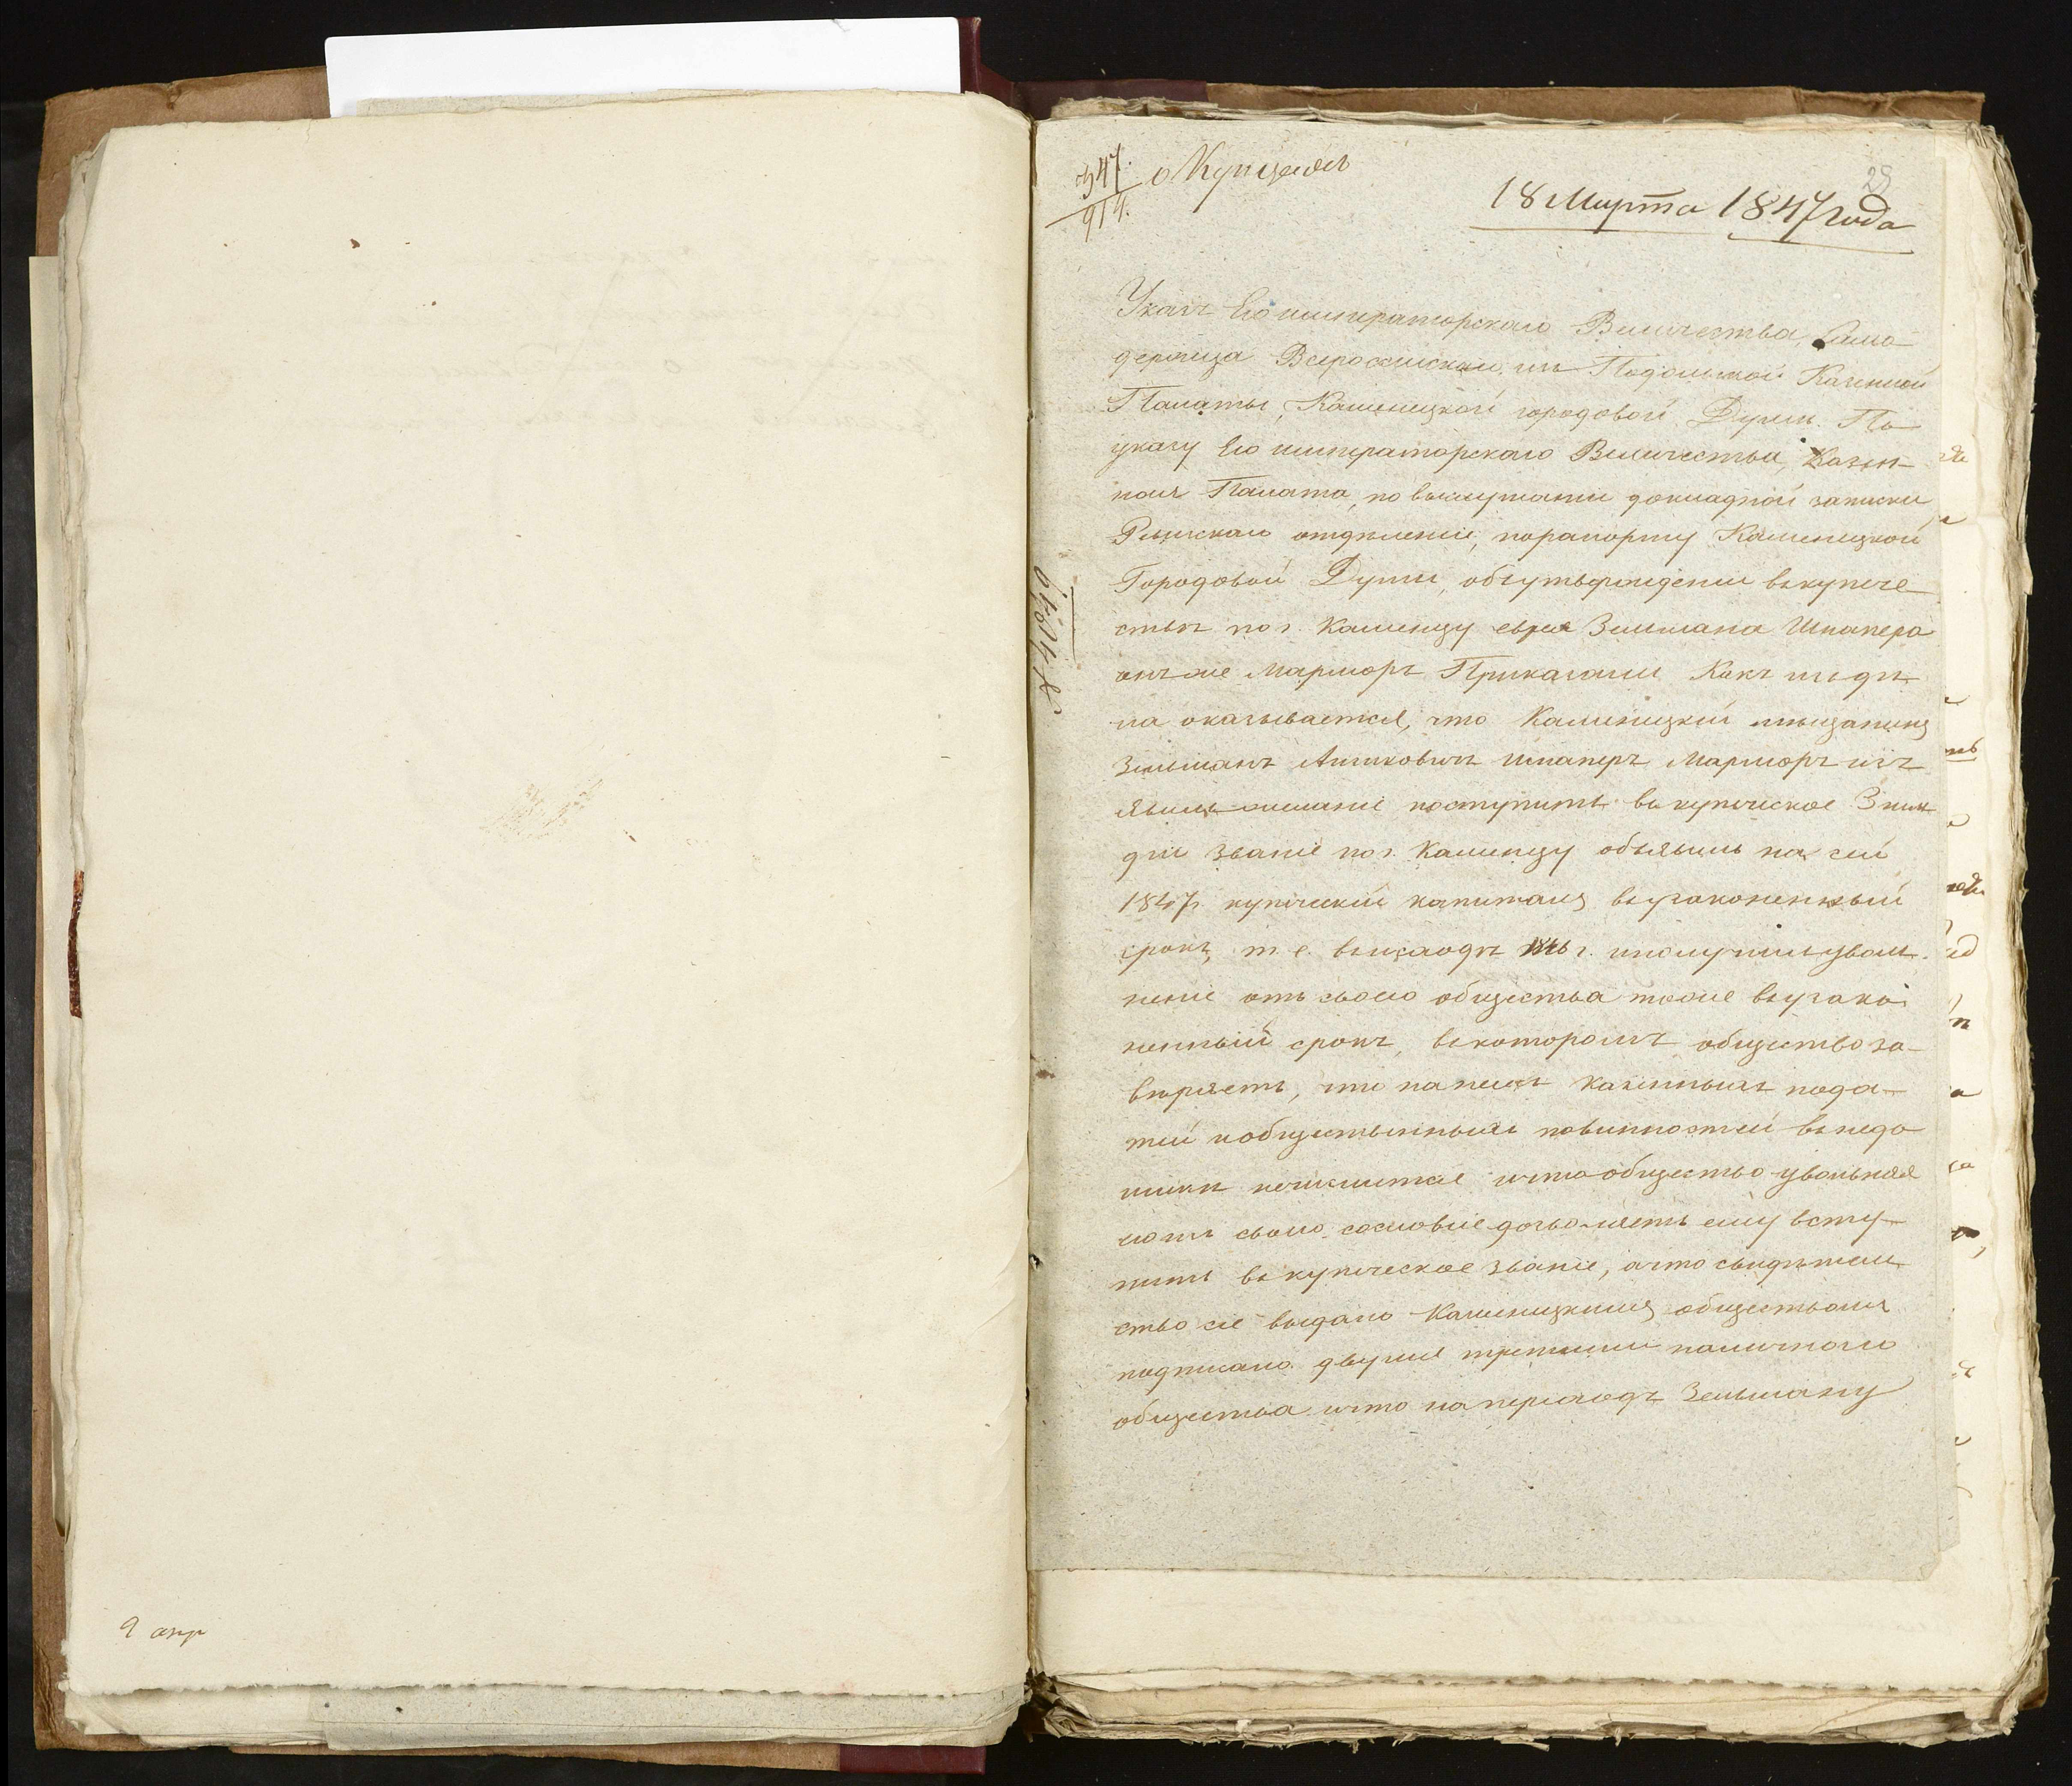 9 апр
347.
914.
о Купцахъ
29
18 Марта 1847 года
Указъ Его императорскаго Величества, Само
держца Всероссискаго, изъ Подольской Казенной
Палаты, Каменецкой городовой Думѣ. По
указу Его императорскаго Величества, Казен
ная Палата, по выслушаніи докладной записки
Ревизскаго отдѣленія, порапорту Каменецкой
Городовой Думы, обсутвержденіи вкупече
ствѣ по г. Каменцу еврея Зельмана Шпапера
онъ же Марморъ Приказали Какъ изъ дѣ
ла оказывается, что Каменецкій мѣщанинъ
Зельманъ Шпаперъ Марморъ изъ
явилъ желаніе поступить вкупеческое 3 гил
діи званіе по г. Каменцу объявилъ на сей
1847 г. купеческій капиталъ въузаконенный
срокъ, т. е. въисходѣ 1846 г. иполучилъ уволь
неніе отъ своего общества тоже въузако
ненный срокъ, вкоторомъ общество за
вѣряетъ, что нанемъ казенныхъ пода
тей иобщественныхъ повинностей внедо
имкѣ нечислится ичто общество увольняя
его изъ своего сословія дозволяетъ ему всту
пить вкупеческое званіе, ичто свидѣтель
ство сіе выдано Каменецкимъ обществомъ
подписано двумя третями наличного
общества ичто напереходъ Зельману